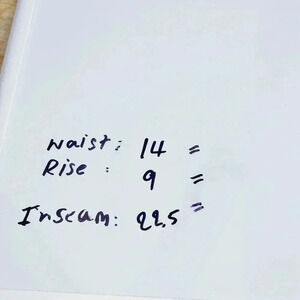 Waist: 14 "
Rise : 9 "
Inseam: 22.5 "